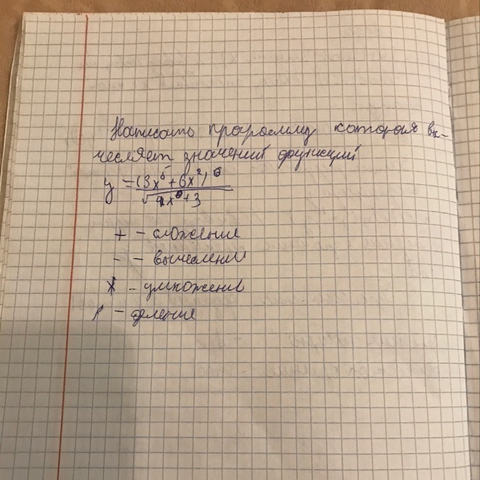 Написать программу которая вы-
чесляет значений функций
y = (3x⁵+6x²)⁶ / √9x⁸+3
+ - сложение
- - вычеслений
* - умножений
/ - деление